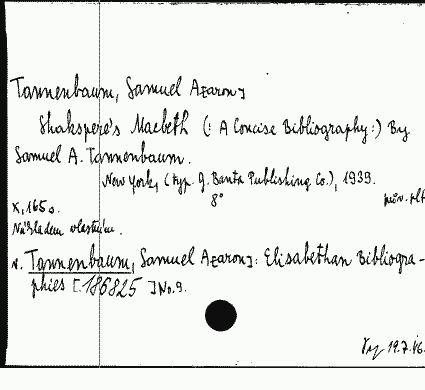 Tannenbaum, Samuel Azaron]
Shakspere's Macbeth (: A Concise Bibliography :) By
Samuel A. Tannenbaum.
New York, (typ. G. Banta Publishing Co.), 1939.
8°
X, 165 s.
Nákladem vlastním.
v. Tannenbaum, Samuel Azaron]: Elisabethan Bibliogra-
phies [186825] No. 9.
19.7.46.